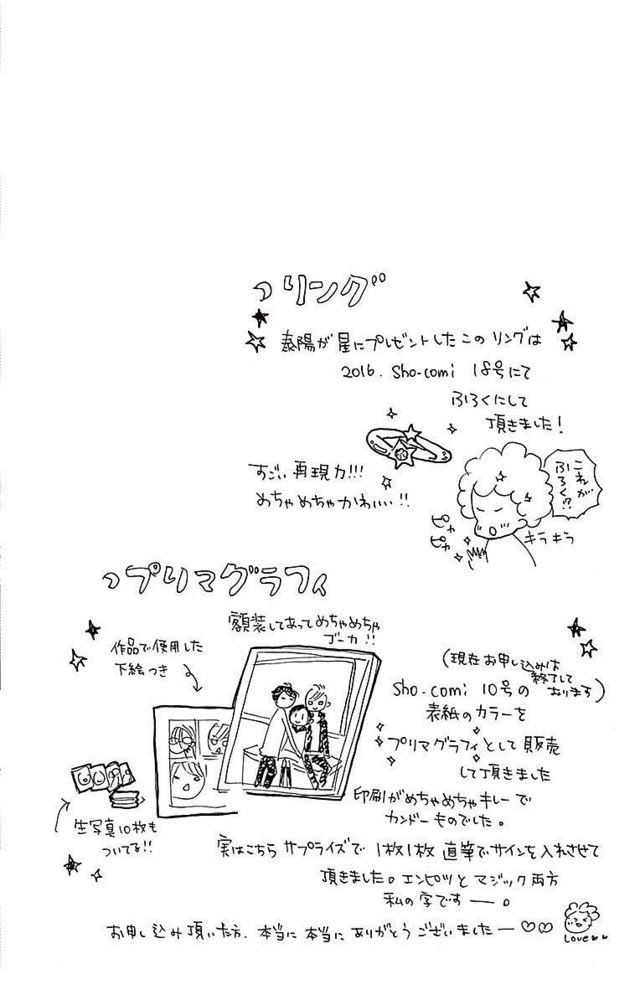 リング
泰陽が星にプレゼントしたこのリングは
2016. Sho-comi 18号にて
ふろくにして
頂きました!
すごい再現力!!!
めちゃめちゃかわいい!!
これが
ふろく!?
ピャ
ピャ
キラキラ
プリマグラフィ
額装してあってめちゃめちゃ
ゴーカ!!
作品で使用した
下絵つき
(現在お申し込みは
終了して
おります)
Sho-comi 10号の
表紙のカラーを
プリマグラフィとして販売
して頂きました
印刷がめちゃめちゃキレーで
カンドーものでした。
生写真10枚も
ついてる!!
実はこちらサプライズで1枚1枚直筆でサインを入れさせて
頂きました。エンピツとマジック両方
私の字ですー。
お申し込み頂いた方、本当に本当にありがとうございましたー♡♡
Love♥♥